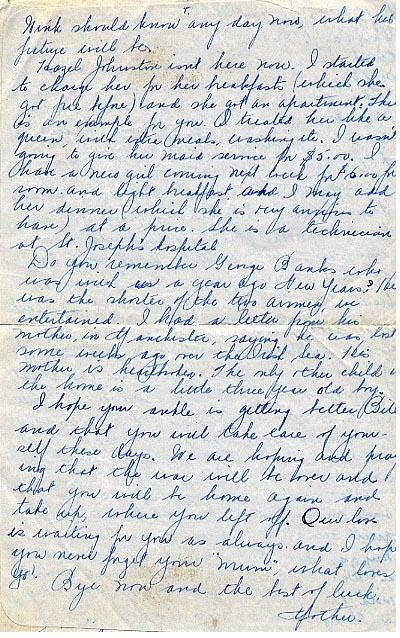 Mink should know any day now, what her
future will be.
Hazel Johnston isn't here now. I started
to charge her for her breakfasts (which she
got free before) and she got an apartment. There
is an example for you. I treated her like a
queen, with extra meals, washing etc. I wasn't
going to give her maid service for $5.00. I
have a new girl coming next week for $6.00 for
room and light breakfast and I may add
her dinner (which she is very anxious to
have) at a price. She is a technician
at St. Joseph's Hospital
Do you remember George Banks who
was with us a year ago New Years? He
was the shorter of the two airmen, we
entertained. I had a letter from his
mother, in Manchester, saying he was lost
some weeks ago over the Sea. His
mother is heartbroken. The only other child in
the home is a little three year old boy.
I hope your ankle is getting better Bill
and that you will take care of your-
self these days. We are hoping and pray-
ing that the war will be over and
that you will be home again and
take up, where you left off. Our love
is waiting for you as always and I hope
you never forget your "Mum" what loves
yo'. Bye now and the best of luck.
Mother.